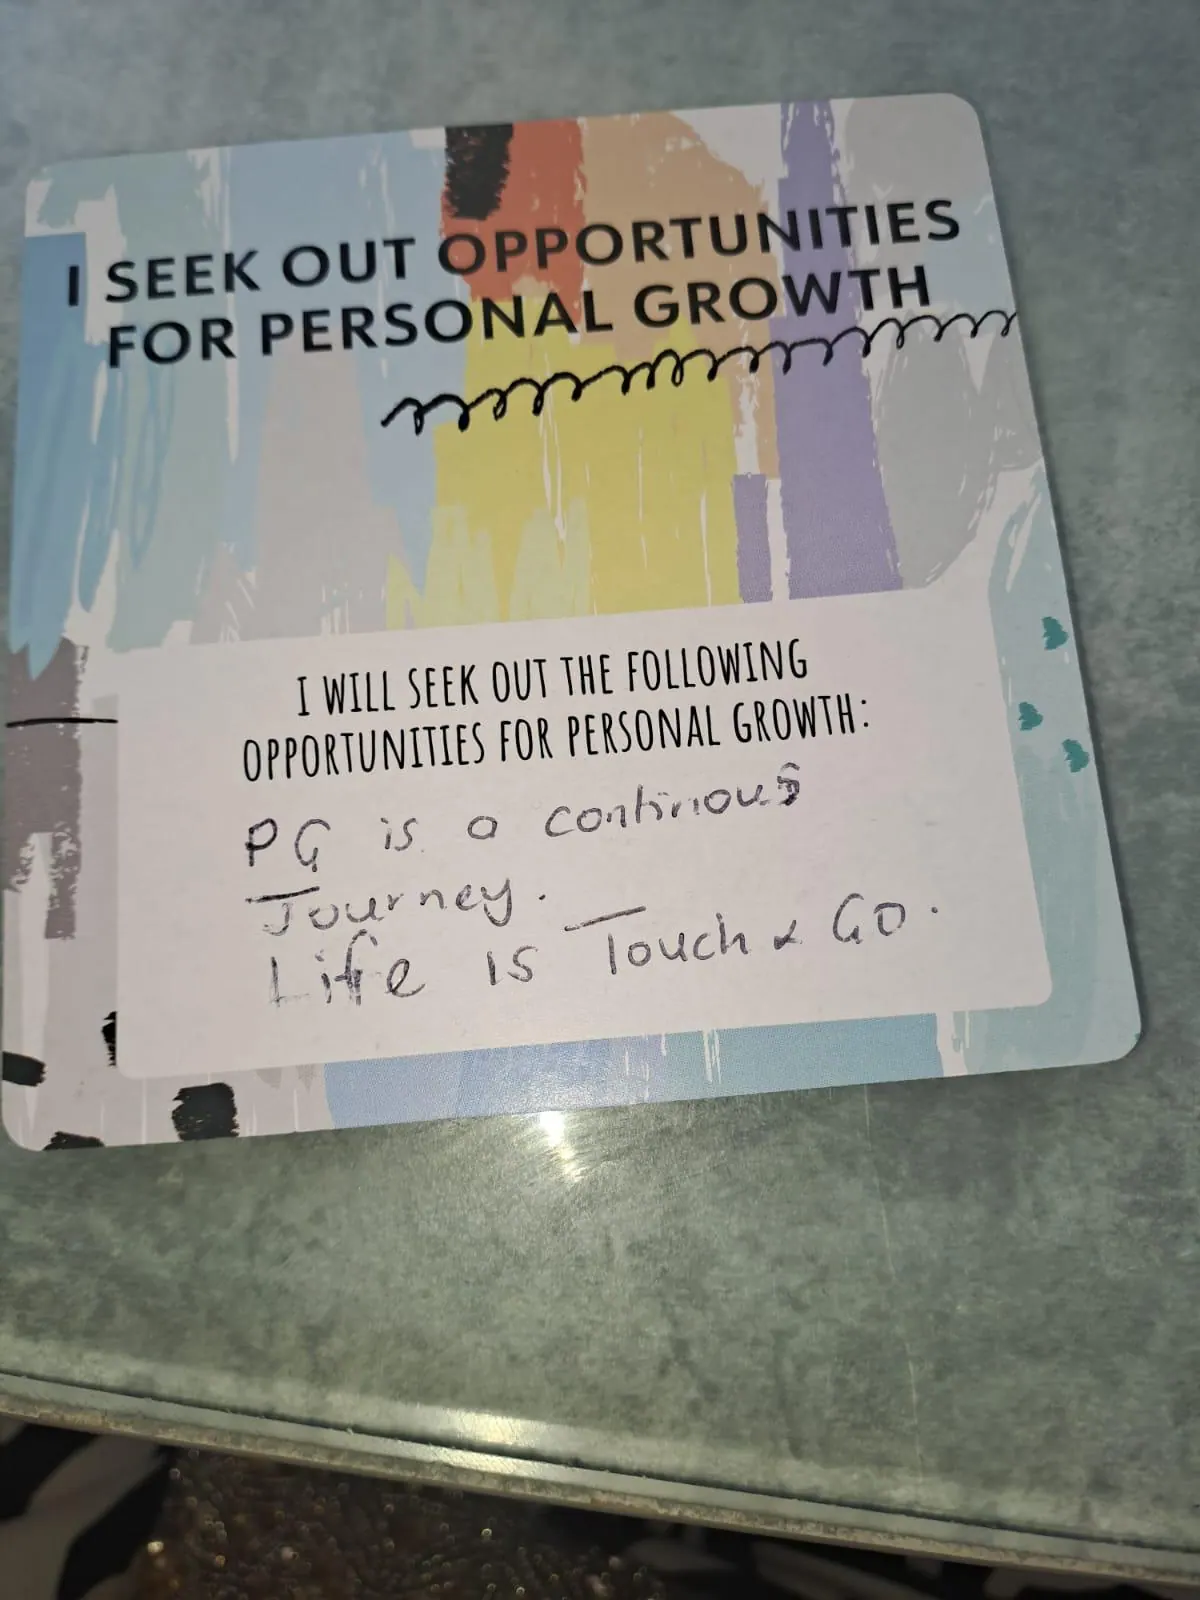 I SEEK OUT OPPORTUNITIES
FOR PERSONAL GROWTH
I WILL SEEK OUT THE FOLLOWING
OPPORTUNITIES FOR PERSONAL GROWTH:
PG is a continous
Journey.
Life is Touch & GO.